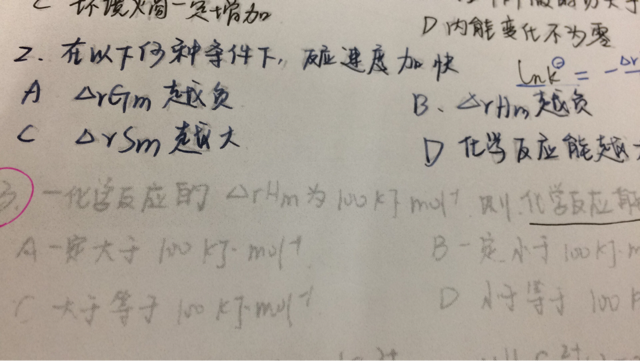 C 环境火商一定增加
D 内能变化不为零
2. 在以下何种条件下, 反应速度加快
lnk⊖ = -Δr
A ΔrGm 越负
B. ΔrHm 越负
C ΔrSm 越大
D 化学反应能越
3. 一化学反应的 ΔrHm为 100 kJ mol⁻¹ 则 化学反应
A 一定大于 100 kJ·mol⁻¹
B 一定小于 100 kJ·m
C 大于等于 100 kJ·mol⁻¹
D 小于等于 100 k
2+
2+